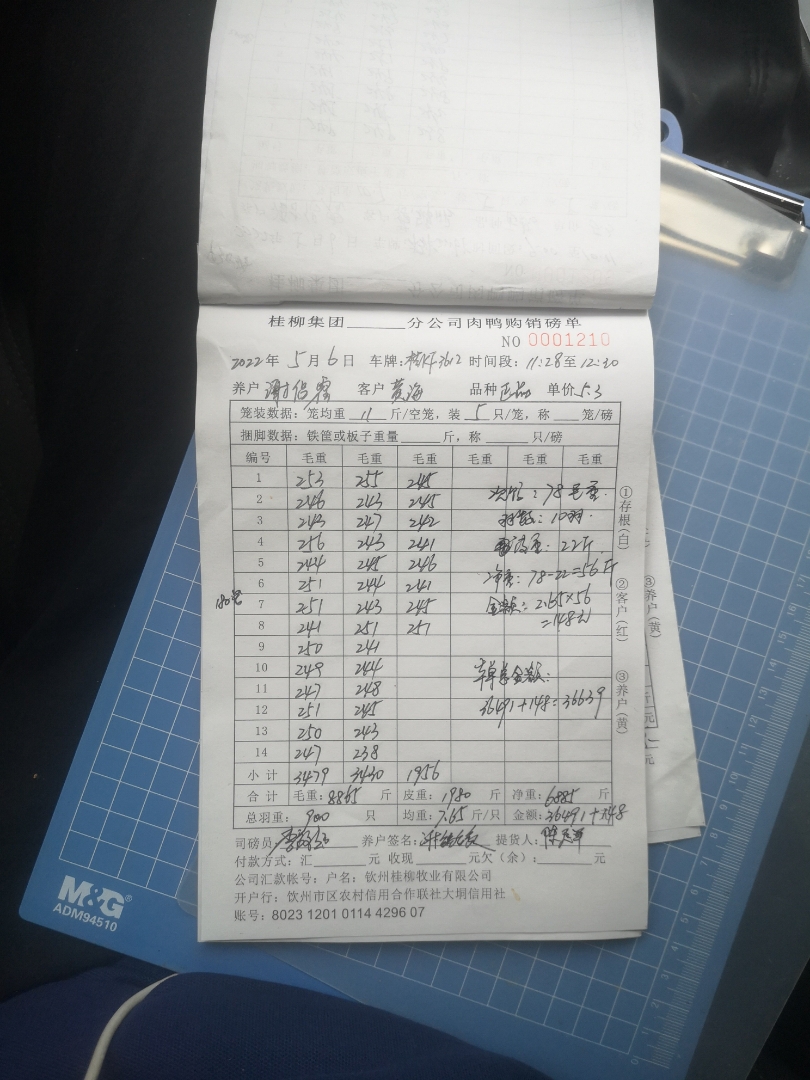 桂柳集团______分公司肉鸭购销磅单
NO 0001210
2022年 5月6日 车牌: 3612 时间段: 11:28至12:20
养户 客户 黄海 品种 正品 单价 5.3
笼装数据: 笼均重 11 斤/空笼, 装 5 只/笼, 称 ____ 笼/磅
捆脚数据: 铁筐或板子重量______斤, 称______只/磅
编号 毛重 毛重 毛重 毛重 毛重 毛重
1 253 255 245
2 246 243 245 : 78毛重.
3 243 247 242 : 10羽.
4 256 243 241 : 22斤.
5 244 245 246
6 251 244 241 净重: 78-22=56斤
180笼
7 251 243 245 金额: 2.65×56
8 241 251 251 =148元
9 250 241
10 249 244 车单总金额:
11 247 248
12 251 245 36491+148=36639
13 250 243
14 247 238
小计 3479 3430 1956
合计 毛重: 8865 斤 皮重: 1980 斤 净重: 6885 斤
总羽重: 900 只 均重: 7.65 斤/只 金额: 36491+148
司磅员 养户签名: 提货人:
付款方式: 汇______元 收现______元欠(余): ______元
公司汇款帐号: 户名: 钦州桂柳牧业有限公司
开户行: 钦州市区农村信用合作联社大垌信用社
账号: 8023 1201 0114 4296 07
①存根(白) ②客户(红) ③养户(黄)
③养户(黄)
斤
元
元
M&G
ADM94510